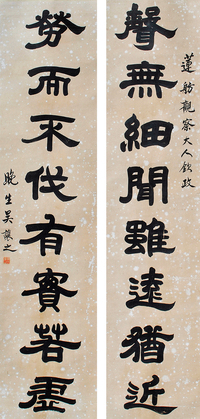 蓮舫觀察大人欽政
聲無細聞雖遠猶近
勞而不伐有實若虛
晚生吳讓之